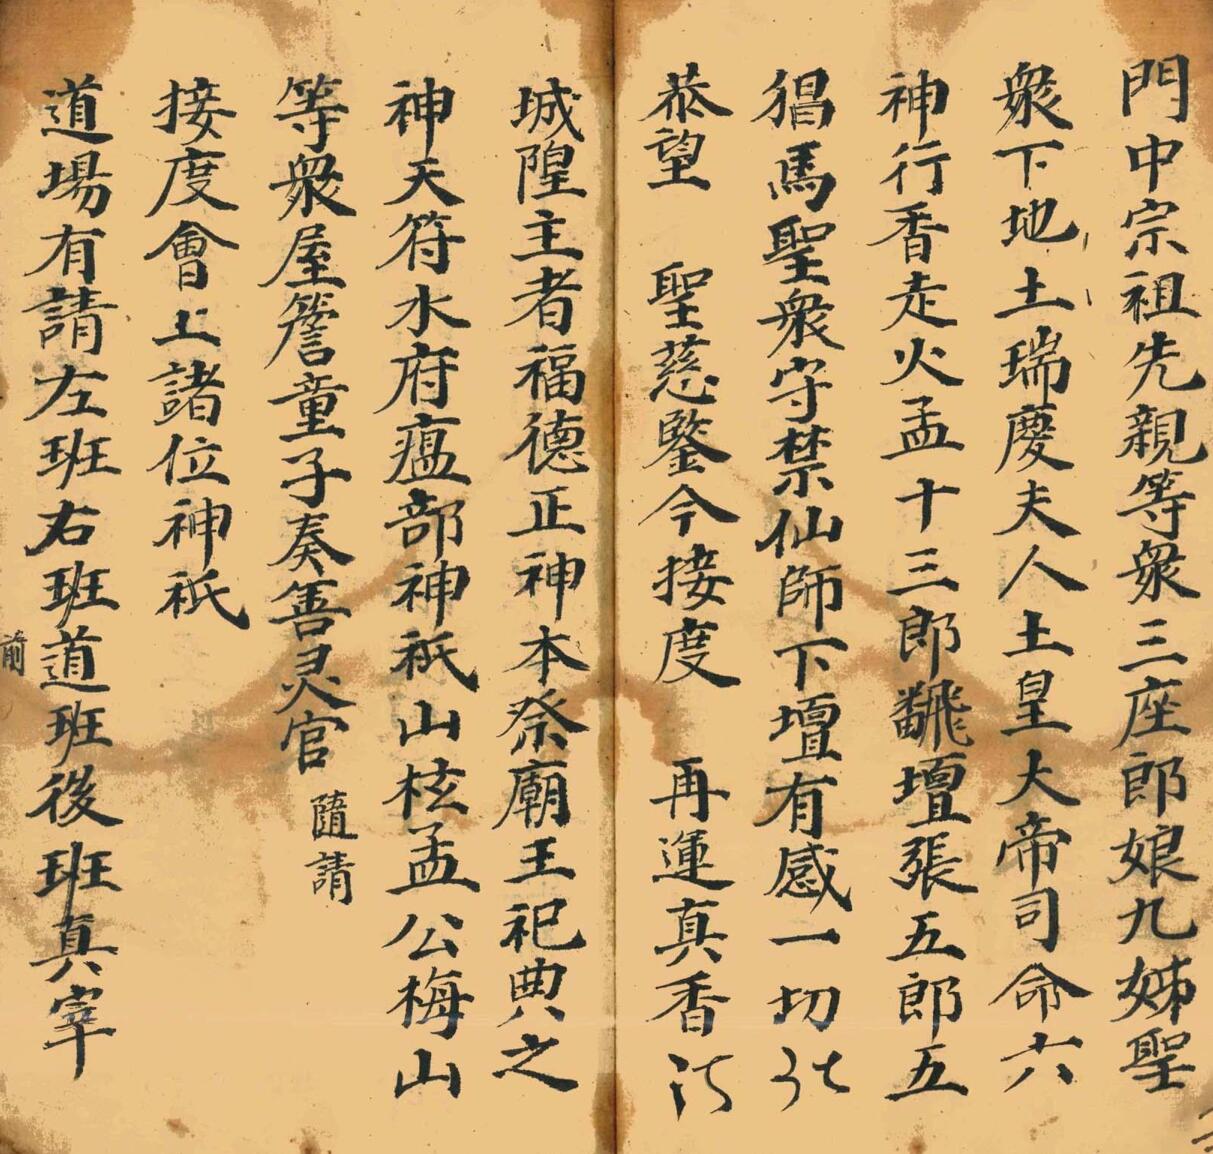 門中宗祖先親等衆三座郎娘九姊聖
衆下地土瑞慶夫人土皇大帝司命六
神行香走火孟十三郎飜壇張五郎五
猖馬聖衆守禁仙師下壇有感一切
恭望　聖慈鑒今接度　再運真香
城隍主者福德正神本祭廟王祀典之
神天符水府瘟部神祇山桂孟公梅山
等衆屋簷童子奏善灵官 隨請
接度會上諸位神祇
道場有請左班右班道班後班真宰
前